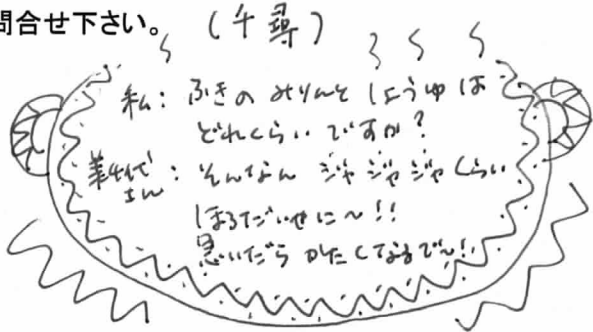 問合せ下さい。 (千尋)
私: ふきの みりんと しょうゆ は
どれくらい ですか?
さん: そんなん ジャジャジャくらい
ほるだいせに〜!!
思いだら かたくてなるで〜!